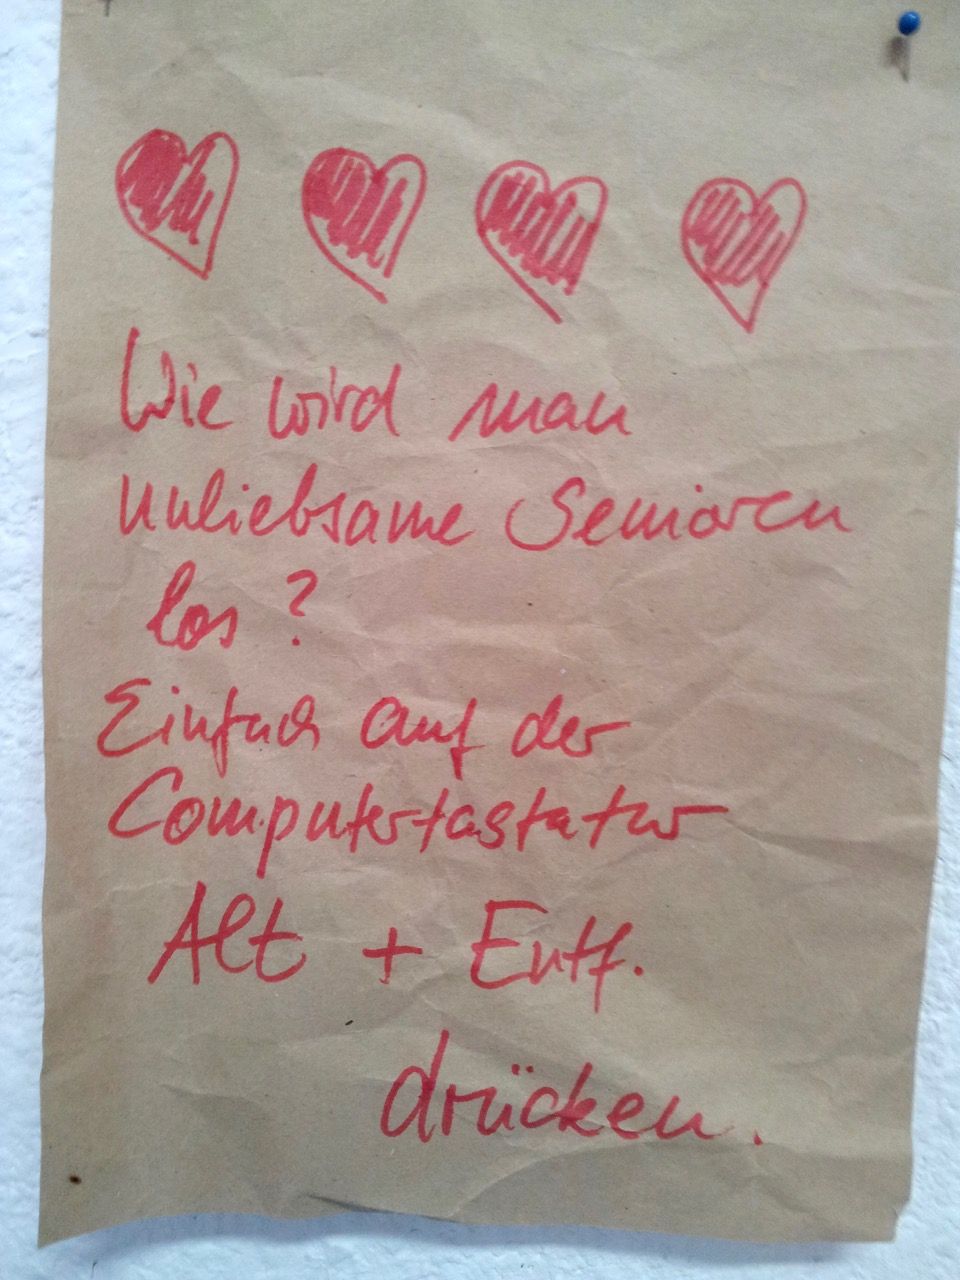 Wie wird man
unliebsame Senioren
los?
Einfach auf der
Computertastatur
Alt + Entf.
drücken.